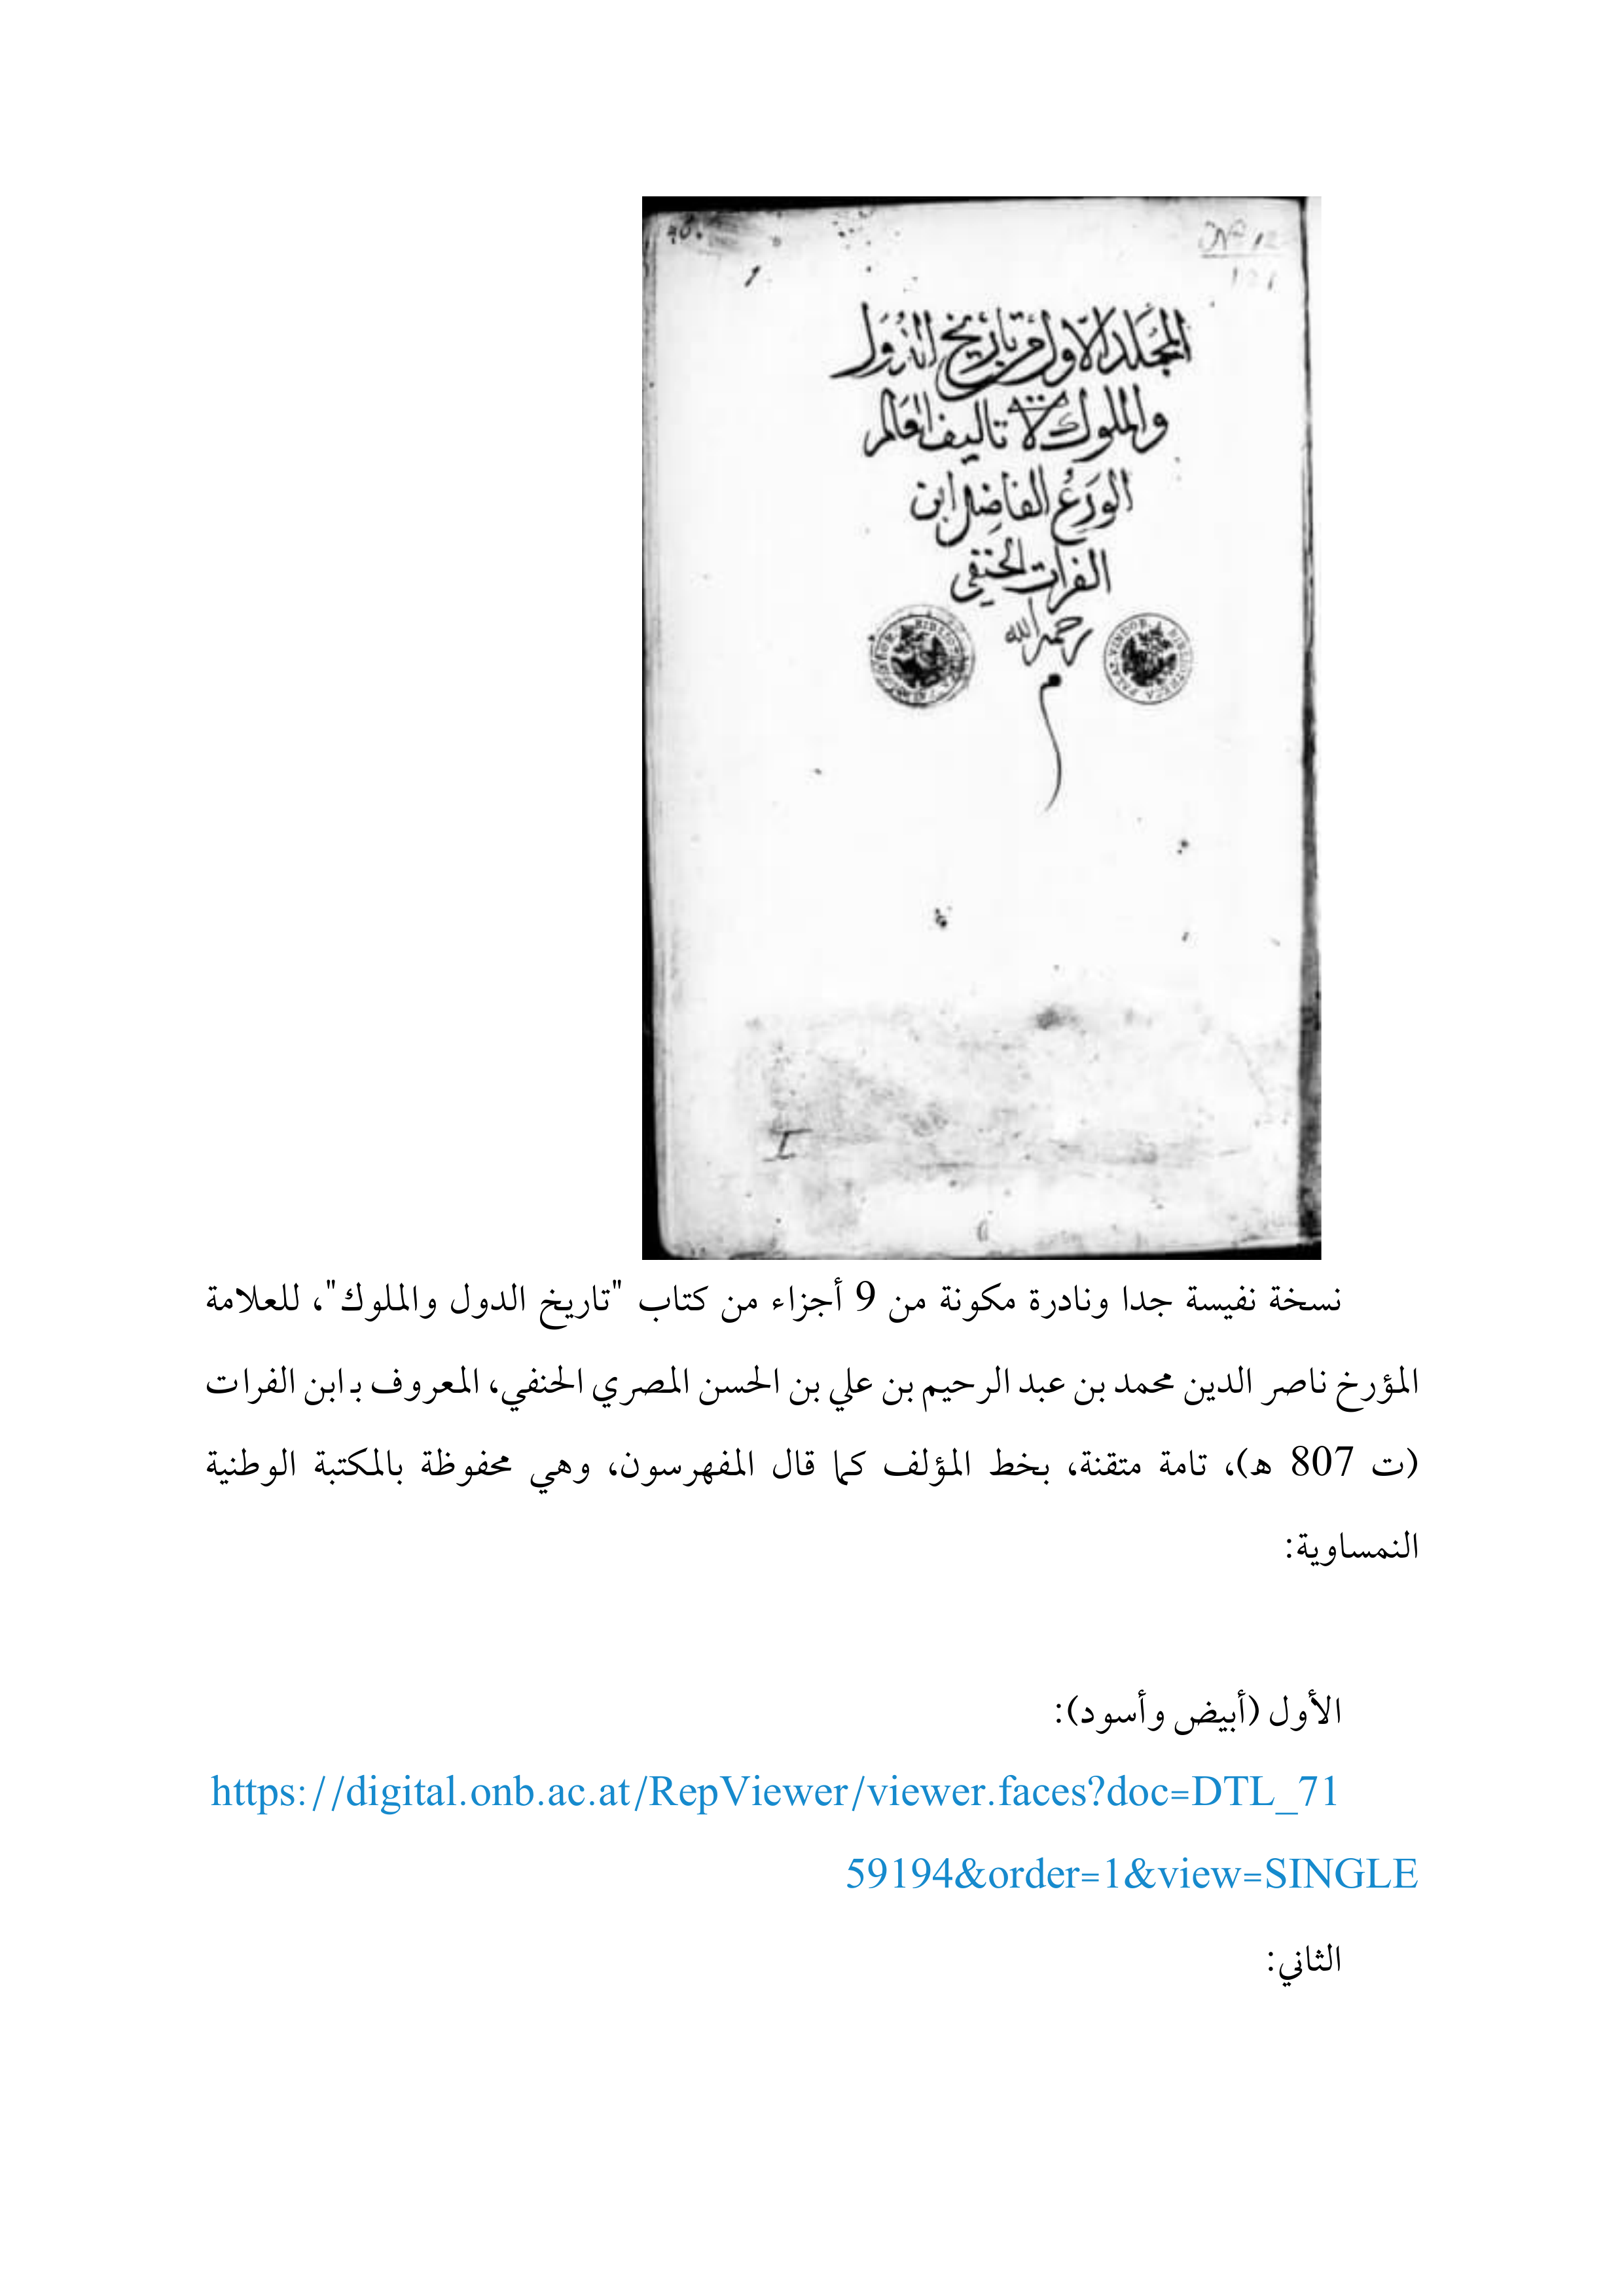 40.
1
Nº 12
المجلد الاول من تاريخ الدول
والملوك تاليف العالم
الورع الفاضل ابن
الفرات الحنفي
رحمه الله
م
I
نسخة نفيسة جدا ونادرة مكونة من 9 أجزاء من كتاب "تاريخ الدول والملوك"، للعلامة
المؤرخ ناصر الدين محمد بن عبد الرحيم بن علي بن الحسن المصري الحنفي، المعروف بـ ابن الفرات
(ت 807 هـ)، تامة متقنة، بخط المؤلف كما قال المفهرسون، وهي محفوظة بالمكتبة الوطنية
النمساوية:
الأول (أبيض وأسود):
https://digital.onb.ac.at/RepViewer/viewer.faces?doc=DTL_71
59194&order=1&view=SINGLE
الثاني: